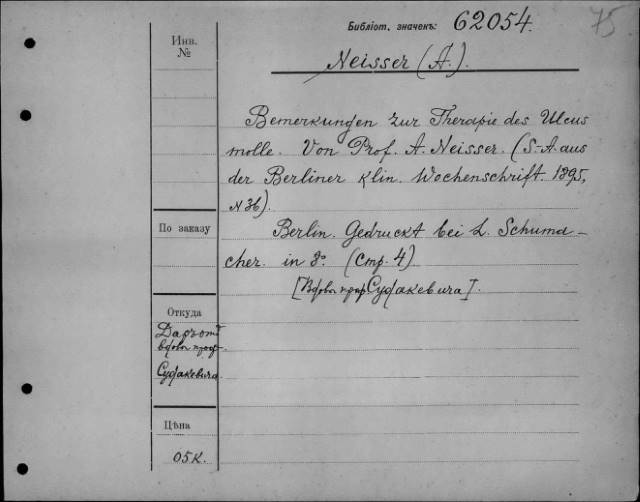 Библіот. значекъ: 62054.
75
Инв.
№
Neisser (A.).
Bemerkungen zur Therapie des Ulcus
molle. Von Prof. A. Neisser. (S.-A. aus
der Berliner klin. Wochenschrift. 1895,
N 36).
По заказу
Berlin. Gedruckt bei L. Schuma-
cher. in 8º. (Стр. 4)
[Вдовы проф Судакевича].
Откуда
Даръ отъ
вдовы проф.
Судакевича
Цѣна
05 к.